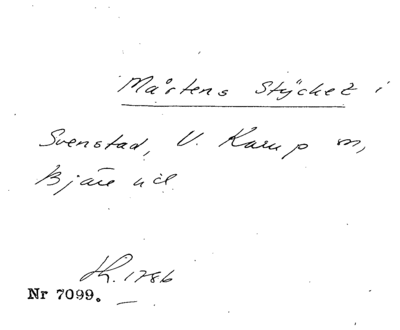 Mårtens Stÿcket i
Svenstad, V. Karup sn,
Bjäre hd
Lh. 1786
Nr 7099.